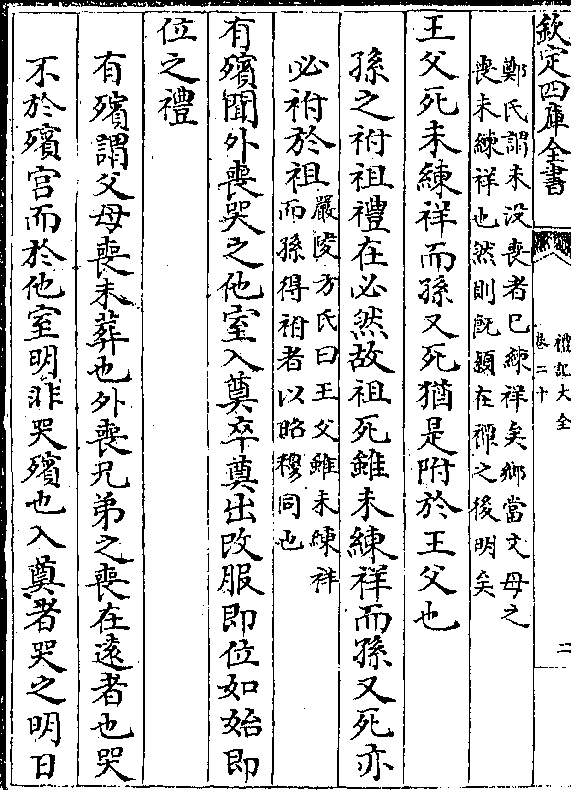 欽定四庫全書
禮記大全
卷二十
二
鄭氏謂未没喪者已練祥矣鄉當父母之
喪未練祥也然則既顈在禫之後明矣
王父死未練祥而孫又死猶是附於王父也
孫之祔祖禮在必然故祖死雖未練祥而孫又死亦
必祔於祖
嚴陵方氏曰王父雖未練祥
而孫得祔者以昭穆同也
有殯聞外喪哭之他室入奠卒奠出改服即位如始即
位之禮
有殯謂父母喪未葬也外喪兄弟之喪在遠者也哭
不於殯宫而於他室明非哭殯也入奠者哭之明日